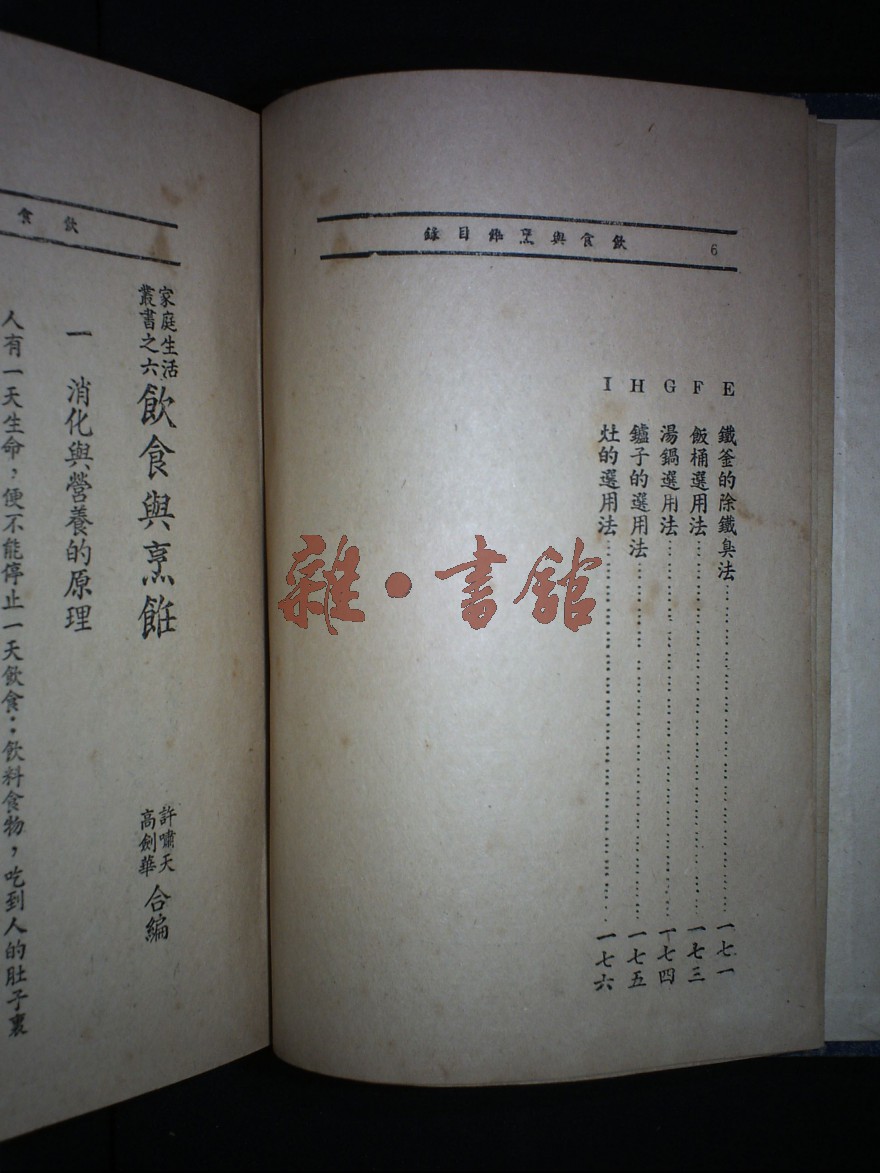 飲食與烹飪目錄 6
E 鐵釜的除鐵臭法……一七一
F 飯桶選用法……一七三
G 湯鍋選用法……一七四
H 鑪子的選用法……一七五
I 灶的選用法……一七六
飲食
家庭生活叢書之六 飲食與烹飪 許嘯天 高劍華 合編
一 消化與營養的原理
人有一天生命，便不能停止一天飲食：飲料食物，吃到人的肚子裏
雜·書館